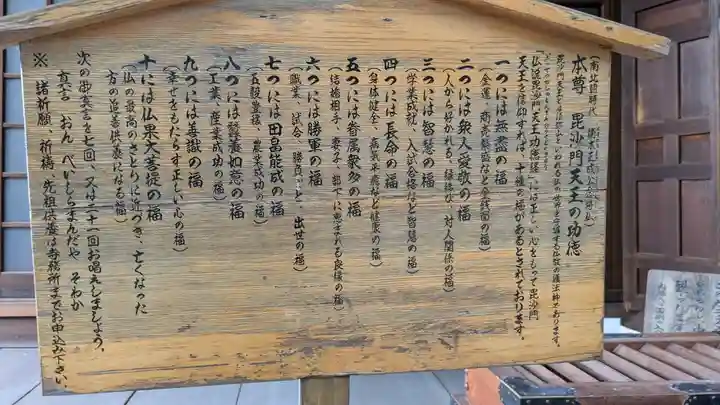 (南北朝時代 楠木正成公念持仏)
本尊 毘沙門天王の功徳
毘沙門天王とは須弥山といわれる仏の世界を守護する仏教の護法神であります。
「仏説毘沙門天王功徳経」には正しい心をもって毘沙門
天王を信仰すれば、十種の福があるとされております。
一つには無盡の福
(金運、商売繁盛など金銭面の福)
二つには衆人愛敬の福
(人から好かれる、縁結び、対人関係の福)
三つには智慧の福
(学業成就、入試合格など智慧の福)
四つには長命の福
(身体健全、病気平癒など健康の福)
五つには眷属衆多の福
(結婚相手、妻子、部下に恵まれる良縁の福)
六つには勝軍の福
(職業、試合、勝負ごと、出世の福)
七つには田畠能成の福
(五穀豊穣、農業成功の福)
八つには蠶養如意の福
(工業、産業成功の福)
九つには善識の福
(幸せをもたらす正しい心の福)
十には仏果大菩提の福
(仏の最高のさとりに近づき、亡くなった
方の追善供養になる福)
次の御真言を七回、又は二十一回お唱えしましょう。
真言 おん べいしらまんだや そわか
※ 諸祈願、祈祷、先祖供養は寺務所までお申込み下さい。